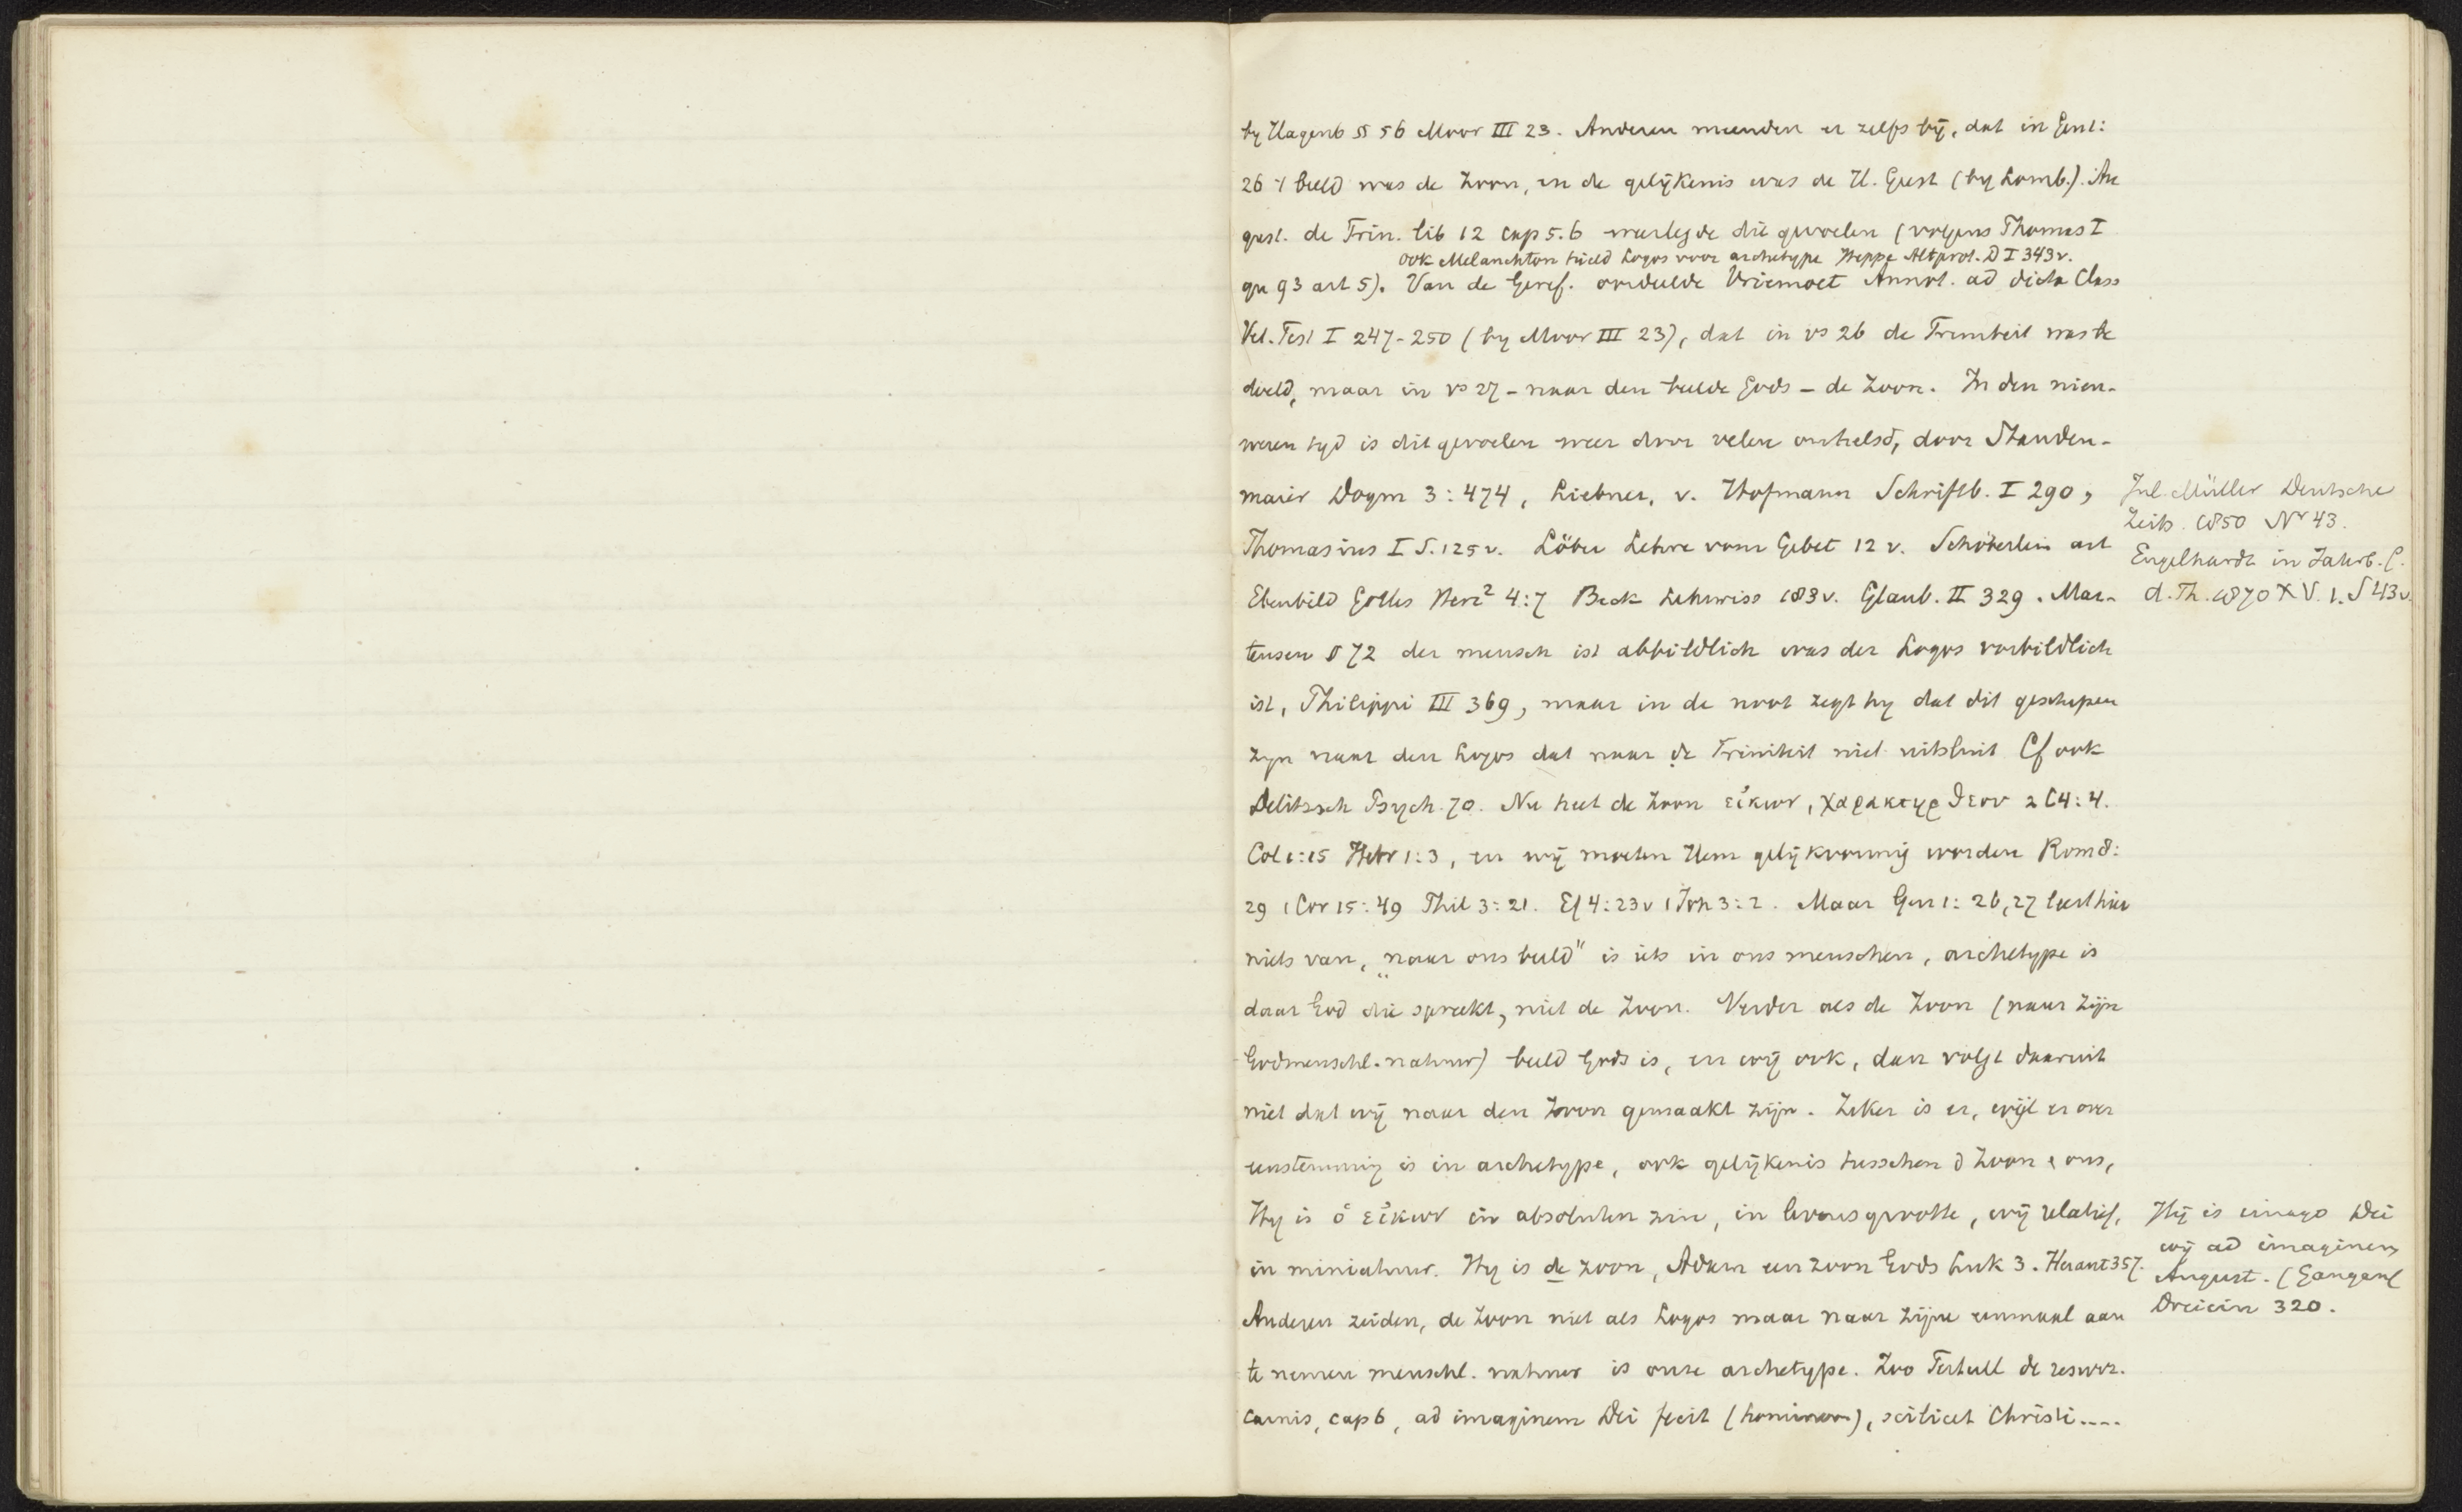 by Hagenb § 56 Moor III 23. Anderen meenden er zelfs bij, dat in Gen 1:
26 't beeld was de Zoon, en de gelijkenis was de H. Geest (by Lomb.). Au
gust. de Trin. lib 12 cap 5.6 weerlegde dit gevoelen (volgens Thomas I
ook Melanchton hield Logos voor archetype Heppe Altprot. D I 343v.
qu 93 art 5). Van de Geref. oordeelde Vriemoet Annot. ad dicta Class
Vet. Test I 247-250 (by Moor III 23), dat in vs 26 de Triniteit was be
doeld, maar in vs 27 - naar den beelde Gods - de Zoon. In den nieu-
weren tyd is dit gevoelen weer door velen omhelsd, door Stauden-
maier Dogm 3:474, Liebner, v. Hofmann Schriftb. I 290,
Jul. Müller Deutsche
Zeits. 1850 Nr 43.
Thomasius I S. 125v. Löber Lehre vom Gebet 12 v. Schöberlein art
Engelhardt in Jahrb. f.
Ebenbild Gottes Herz² 4:7 Beck Lehrwiss 183v. Glaub. II 329. Mar-
d. Th. 1870 XV. 1. S 43v.
tensen § 72 der mensch ist abbildlich was der Logos vorbildlich
ist, Philippi III 369, maar in de noot zegt hy dat dit geschapen
zyn naar den Logos dat naar de Triniteit niet uitsluit Cf ook
Delitzsch Psych. 70. Nu heet de Zoon εἰκων, χαρακτηρ θεου 2 C 4:4.
Col 1:15 Hebr 1:3, en wij moeten Hem gelijkvormig worden Rom 8:
29 1 Cor 15:49 Phil 3:21. Ef 4:23v 1 Joh 3:2. Maar Gen 1:26,27 leert hier
niets van, „naar ons beeld" is iets in ons menschen, archetype is
daar God die spreekt, niet de Zoon. Verder als de Zoon (naar zijn
Godmenschl. natuur) beeld Gods is, en wij ook, dan volgt daaruit
niet dat wij naar den Zoon gemaakt zijn. Zeker is er, wijl er over
eenstemming is in archetype, ook gelijkenis tusschen d Zoon & ons,
Hy is ὁ εἰκων in absoluten zin, in levensgrootte, wij relatief,
in miniatuur. Hy is de zoon, Adam een zoon Gods Luk 3. Heraut 357.
Hij is imago Dei
wij ad imaginem
August. (Gangauf
Dreiein 320.
Anderen zeiden, de Zoon niet als Logos maar naar zijne eenmaal aan
te nemen menschl. natuur is onze archetype. Zoo Tertull de resurr.
carnis, cap 6, ad imaginem Dei fecit (hominem), scilicet Christi....